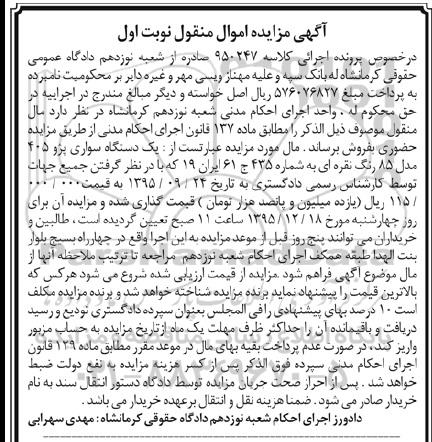 آگهی مزایده اموال منقول نوبت اول
درخصوص پرونده اجرائی کلاسه ۹۵۰۲۴۷ صادره از شعبه نوزدهم دادگاه عمومی
حقوقی کرمانشاه له بانک سپه و علیه مهناز ویسی مهر و غیره دایر بر محکومیت نامبرده
به پرداخت مبلغ ۵۷۶۰۷۶۸۲۷ ریال اصل خواسته و دیگر مبالغ مندرج در اجرائیه در
حق محکوم له . واحد اجرای احکام مدنی شعبه نوزدهم کرمانشاه در نظر دارد مال
منقول موصوف ذیل الذکر را مطابق ماده ۱۳۷ قانون اجرای احکام مدنی از طریق مزایده
حضوری بفروش برساند . مال مورد مزایده عبارتست از : یک دستگاه سواری پژو ۴۰۵
مدل ۸۵ رنگ نقره ای به شماره ۴۳۵ ج ۶۱ ایران ۱۹ که با در نظر گرفتن جمیع جهات
توسط کارشناس رسمی دادگستری به تاریخ ۲۴ / ۰۹ / ۱۳۹۵ به قیمت ۰۰۰ / ۰۰۰
/ ۱۱۵ ریال (یازده میلیون و پانصد هزار تومان ) قیمت گذاری شده و مزایده آن برای
روز چهارشنبه مورخ ۱۸ / ۱۲ / ۱۳۹۵ ساعت ۱۱ صبح تعیین گردیده است ، طالبین و
خریداران می توانند پنج روز قبل از موعد مزایده به این اجرا واقع در چهارراه بسیج بلوار
بنت الهدا طبقه همکف اجرای احکام شعبه نوزدهم مراجعه تا ترتیب ملاحظه آنها از
مال موضوع آگهی فراهم شود .مزایده از قیمت ارزیابی شده شروع می شود هرکس که
بالاترین قیمت را پیشنهاد نماید برنده مزایده شناخته خواهد شد و برنده مزایده مکلف
است ۱۰ درصد بهای پیشنهادی رافی المجلس بعنوان سپرده دادگستری تودیع و رسید
دریافت و باقیمانده آن را حداکثر ظرف مهلت یک ماه ازتاریخ مزایده به حساب مزبور
واریز کند، در صورت عدم پرداخت بقیه بهای مال در موعد مقرر مطابق ماده ۱۲۹ قانون
اجرای احکام مدنی سپرده فوق الذکر پس از کسر هزینه مزایده به نفع دولت ضبط
خواهد شد . پس از احراز صحت جریان مزایده توسط دادگاه دستور انتقال سند به نام
خریدار صادر می شود . ضمنا هزینه نقل و انتقال بر عهده خریدار می باشد .
دادورز اجرای احکام شعبه نوزدهم دادگاه حقوقی کرمانشاه : مهدی سهرابی